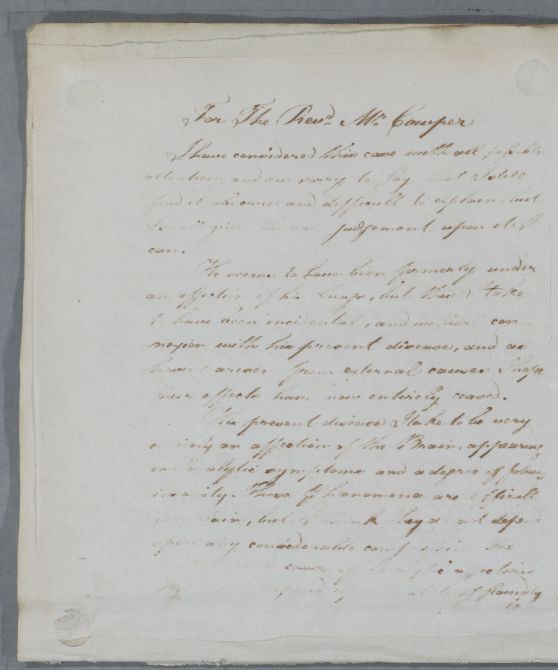 For The Revd. Mr. Cowper
I have considered this case with all possible
attention and am sorry to say that I still
find it obscure and difficult to explain, but
give the best judgement upon it I
can.
He seems to have been formerly under
an affection of his Lungs, but this I take
to have been incidental, and without con-
nexion with his present disease, and as
from external causes I hope
their effects have now entirely ceased.
His present disease I take to be very
entirely an affection of the Brain, appearing
in paralytic symptoms and a degree of
insanity. These Phœnomena are difficult
explain, but I think they do not depend
upon any considerable compression
cases of affections
depend upon a state of flaccidity
in